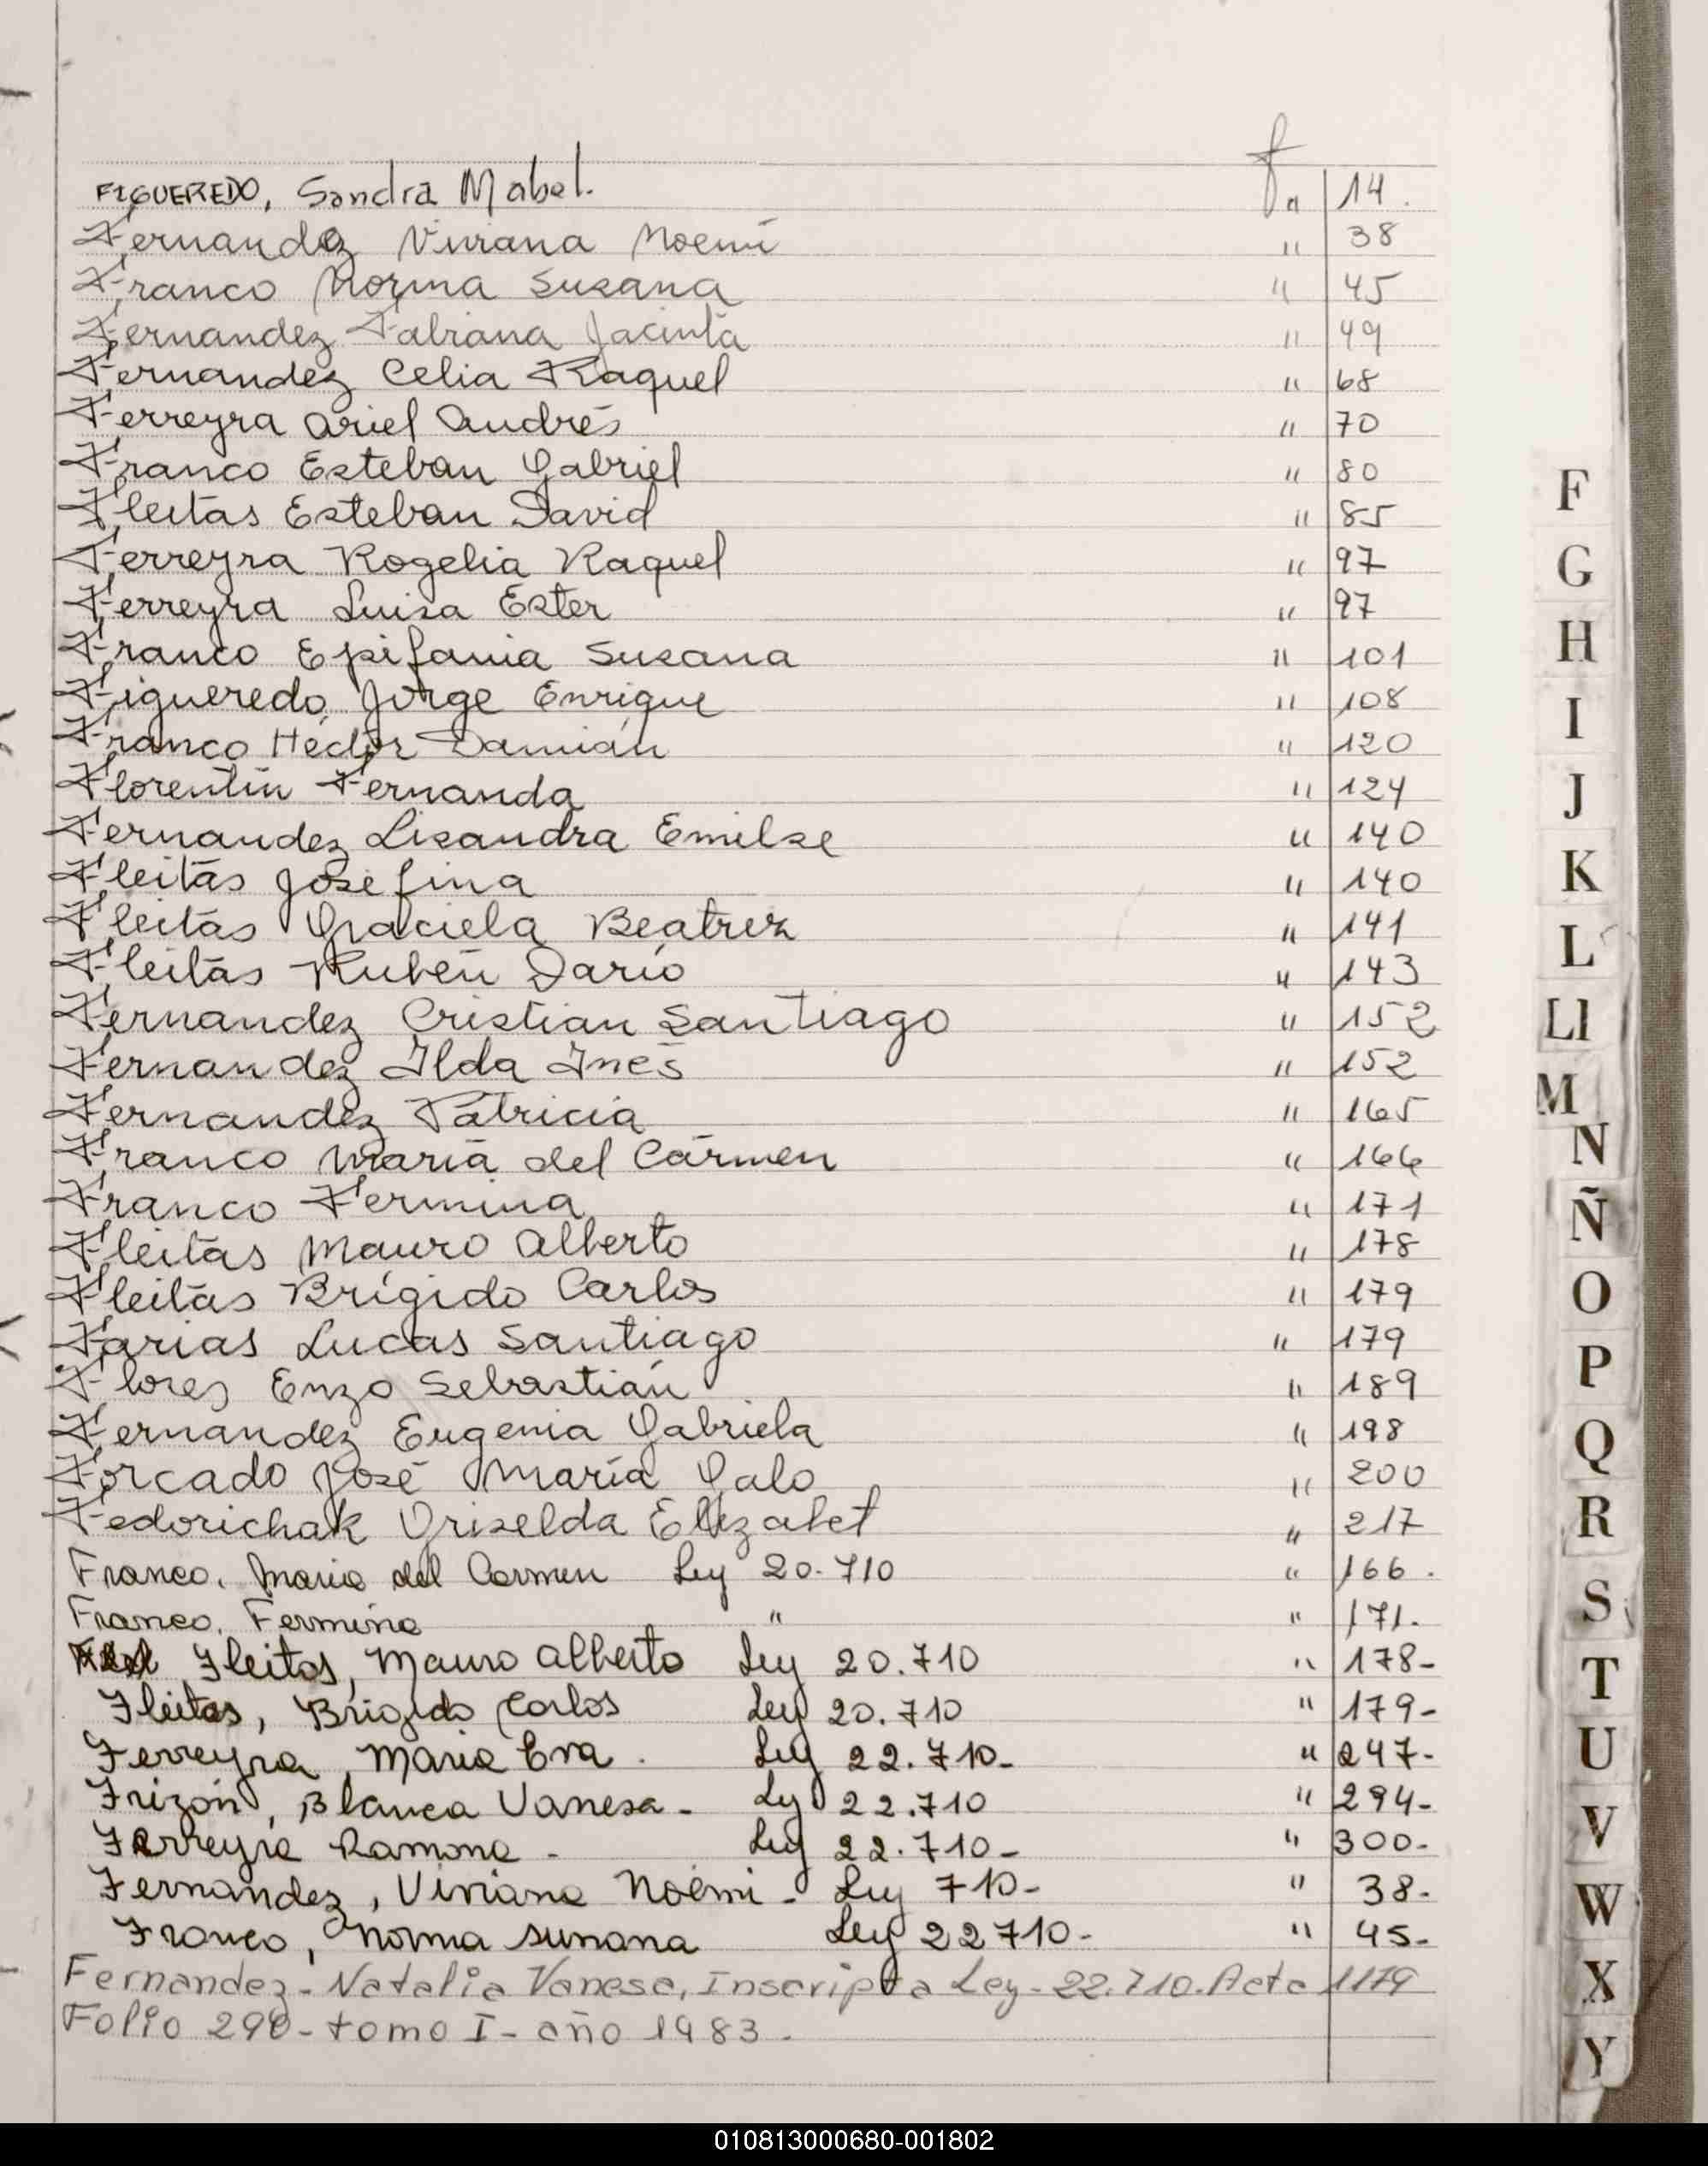 f
FIGUEREDO, Sandra Mabel. " 14.
Fernandez Viviana Noemí " 38
Franco Norma Susana " 45
Fernandez Fabiana Jacinta " 49
Fernandez Celia Raquel " 68
Ferreyra Ariel Andrés " 70
Franco Esteban Gabriel " 80
Fleitas Esteban David " 85
Ferreyra Rogelia Raquel " 97
Ferreyra Luisa Ester " 97
Franco Epifania Susana " 101
Figueredo Jorge Enrique " 108
Franco Héctor Damián " 120
Florentín Fernanda " 124
Fernandez Lisandra Emilse " 140
Fleitas Josefina " 140
Fleitas Graciela Beatriz " 141
Fleitas Rubén Darío " 143
Fernandez Cristian Santiago " 152
Fernandez Ilda Inés " 152
Fernandez Patricia " 165
Franco María del Cármen " 166
Franco Fermina " 171
Fleitas Mauro Alberto " 178
Fleitas Brígido Carlos " 179
Farias Lucas Santiago " 179
Flores Enzo Sebastián " 189
Fernandez Eugenia Gabriela " 198
Forcado José María Galo " 200
Fedorichak Griselda Elizabet " 217
Franco, Maria del Carmen Ley 20.710 " 166.
Franco, Fermina " " 171.
Fleitas, Mauro Alberto Ley 20.710 " 178-
Fleitas, Brigido Carlos Ley 20.710 " 179-
Ferreyra, Maria Eva. Ley 22.710- " 247-
Frizón, Blanca Vanesa- Ley 22.710 " 294-
Ferreyra Ramona - Ley 22.710- " 300-
Fernandez, Viviana Noemi- Ley 710- " 38-
Franco, Norma Susana Ley 22710- " 45-
Fernandez- Natalia Vanesa, Inscripta Ley-22.710. Acta 1179
Folio 290-tomo I- año 1983.
F
G
H
I
J
K
L
Ll
M
N
Ñ
O
P
Q
R
S
T
U
V
W
X
Y
010813000680-001802